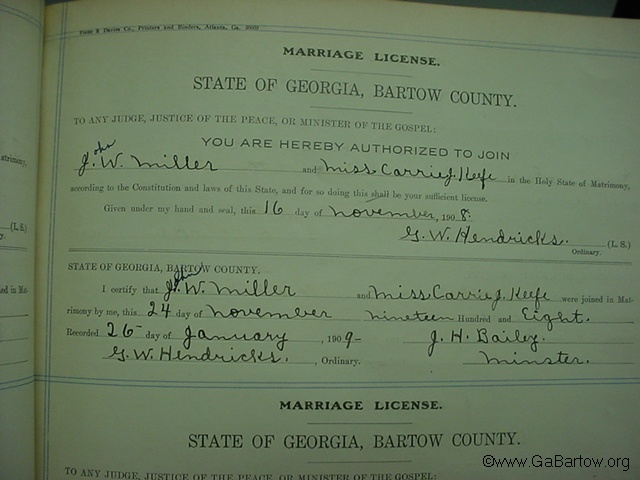 Foote & Davies Co., Printers and Binders, Atlanta, Ga.
MARRIAGE LICENSE.
STATE OF GEORGIA, BARTOW COUNTY.
TO ANY JUDGE, JUSTICE OF THE PEACE, OR MINISTER OF THE GOSPEL:
YOU ARE HEREBY AUTHORIZED TO JOIN
ohn
J. W. Miller and Miss Carrie J. Keefe in the Holy State of Matrimony,
according to the Constitution and laws of this State, and for so doing this shall be your sufficient license.
Given under my hand and seal, this 16 day of November, 1908.
G. W. Hendricks. (L. S.)
Ordinary.
STATE OF GEORGIA, BARTOW COUNTY.
ohn
I certify that J. W. Miller and Miss Carrie J. Keefe were joined in Mat-
rimony by me, this 24 day of November nineteen Hundred and Eight.
Recorded 26 day of January, 1909- J. H. Bailey.
G. W. Hendricks., Ordinary. Minster.
MARRIAGE LICENSE.
STATE OF GEORGIA, BARTOW COUNTY.
TO ANY JUDGE, JUSTICE OF THE PEACE, OR MINISTER OF THE GOSPEL:
atrimony,
(L. S.)
ned in Mat-
©www.GaBartow.org